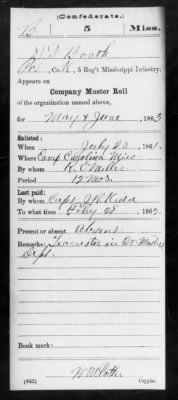 (Confederate.)
B 5 Miss.
Booth
Co. 5 Reg't Mississippi Infantry.
Appears on
Company Muster Roll
of the organization named above,
for May & June, 1863
Enlisted:
When July 20, 1861.
Where Camp Carolina Miss.
By whom R. C. Miller
Period 12 Mos.
Last paid:
By whom Capt.
To what time Feby 28, 1862.
Present or absent Absent
Remarks: in Qr. Masters
Dept.
Book mark:
(642) Copyist.